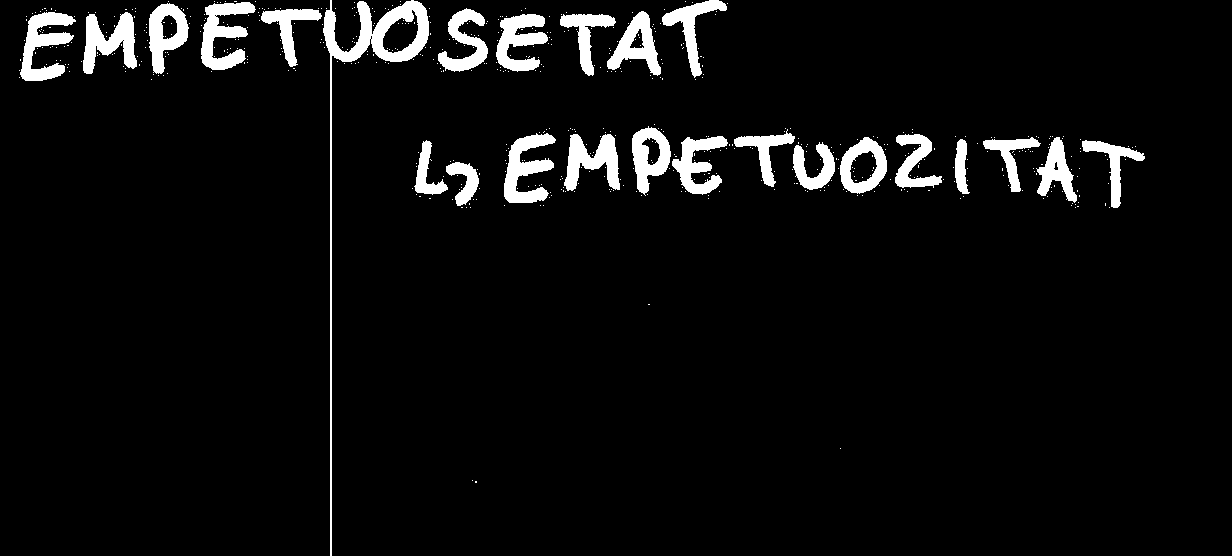 EMPETUOSETAT
↳ EMPETUOZITAT